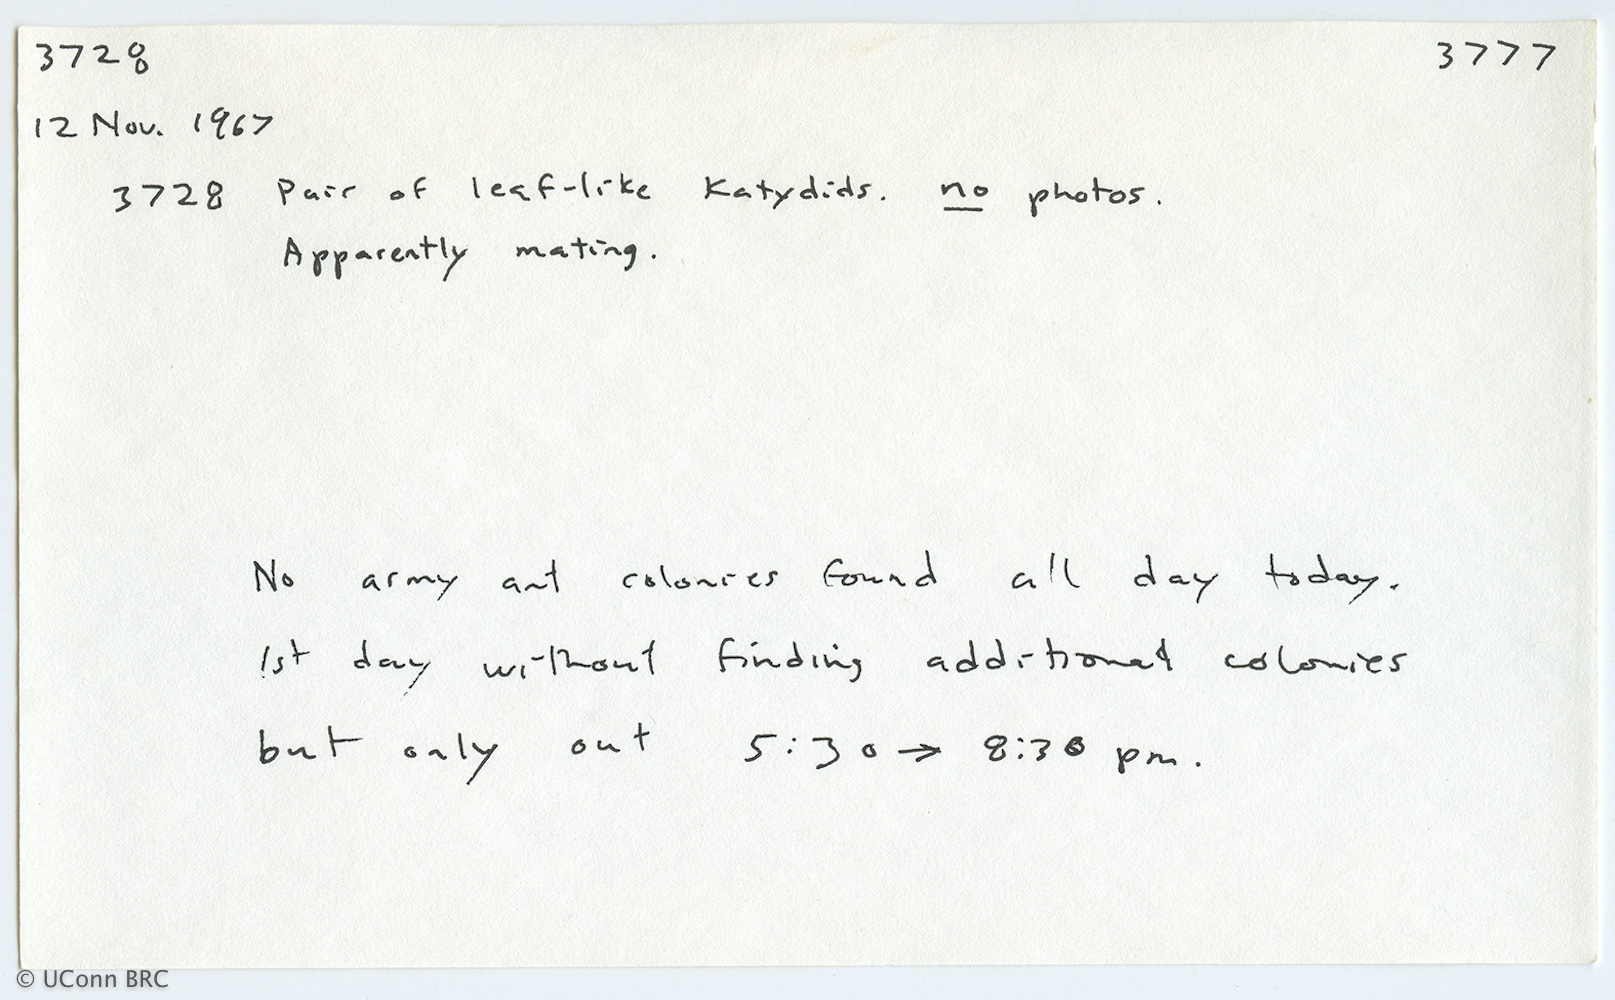 3728 3777
12 Nov. 1967
3728 Pair of leaf-like Katydids. no photos.
Apparently mating.
No army ant colonies found all day today.
1st day without finding additional colonies
but only out 5:30 → 8:30 pm.
© UConn BRC